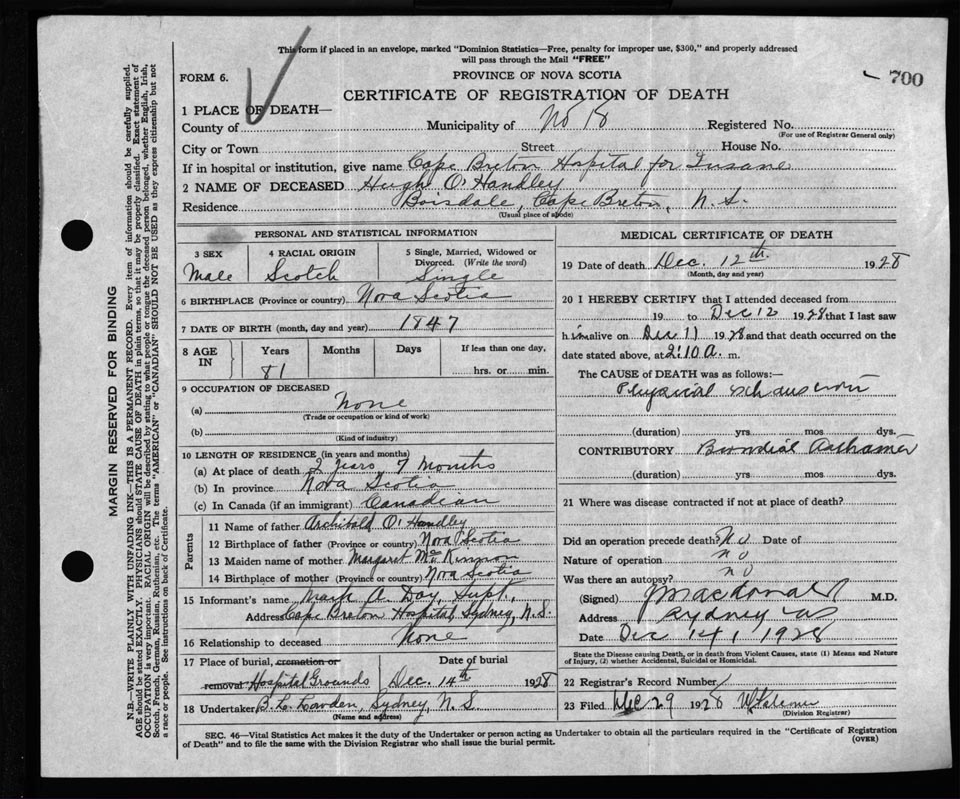 This form if placed in an envelope, marked "Dominion Statistics—Free, penalty for improper use, $300," and properly addressed
will pass through the Mail "FREE"
FORM 6.
PROVINCE OF NOVA SCOTIA
700
CERTIFICATE OF REGISTRATION OF DEATH
1 PLACE OF DEATH—
County of Municipality of No 18 Registered No.
(For use of Registrar General only)
City or Town Street House No.
If in hospital or institution, give name Cape Breton Hospital for Insane
2 NAME OF DECEASED Hugh O'Handley
Residence Boisdale, Cape Breton, N.S.
(Usual place of abode)
MARGIN RESERVED FOR BINDING
N.B.—WRITE PLAINLY WITH UNFADING INK—THIS IS A PERMANENT RECORD. Every item of information should be carefully supplied.
AGE should be stated EXACTLY. PHYSICIANS should STATE CAUSE OF DEATH in plain terms, so that it may be properly classified. Exact statement of
OCCUPATION is very important. RACIAL ORIGIN will be described by stating to what people or tongue the deceased person belonged, whether English, Irish,
Scotch, French, German, Russian, Ruthenian, etc. The terms "AMERICAN" or "CANADIAN" SHOULD NOT BE USED as they express citizenship but not
a race or people. See instructions on back of Certificate.
PERSONAL AND STATISTICAL INFORMATION
3 SEX
Male
4 RACIAL ORIGIN
Scotch
5 Single, Married, Widowed or
Divorced. (Write the word)
Single
6 BIRTHPLACE (Province or country) Nova Scotia
7 DATE OF BIRTH (month, day and year) 1847
8 AGE
IN
Years
81
Months
Days
If less than one day,
hrs. or min.
9 OCCUPATION OF DECEASED
(a) None
(Trade or occupation or kind of work)
(b)
(Kind of industry)
10 LENGTH OF RESIDENCE (in years and months)
(a) At place of death 2 years 7 Months
(b) In province Nova Scotia
(c) In Canada (if an immigrant) Canadian
Parents
11 Name of father Archibald O'Handley
12 Birthplace of father (Province or country) Nova Scotia
13 Maiden name of mother Margaret McKinnon
14 Birthplace of mother (Province or country) Nova Scotia
15 Informant's name Mark A. Day, Supt.,
Address Cape Breton Hospital, Sydney, N.S.
16 Relationship to deceased None
17 Place of burial, cremation or
removal Hospital Grounds
Date of burial
Dec. 14th 1928
18 Undertaker Sydney, N.S.
(Name and address)
MEDICAL CERTIFICATE OF DEATH
19 Date of death Dec. 12th 1928
(Month, day and year)
20 I HEREBY CERTIFY that I attended deceased from
19 to Dec 12 1928 that I last saw
him alive on Dec 11 1928 and that death occurred on the
date stated above, at 2:10 a. m.
The CAUSE OF DEATH was as follows:—
Physical
(duration) yrs mos dys.
CONTRIBUTORY
(duration) yrs mos dys.
21 Where was disease contracted if not at place of death?
Did an operation precede death? No Date of
Nature of operation no
Was there an autopsy? no
(Signed) MacDonald M.D.
Address Sydney
Date Dec 14, 1928
State the Disease causing Death, or in death from Violent Causes, state (1) Means and Nature
of Injury, (2) whether Accidental, Suicidal or Homicidal.
22 Registrar's Record Number
23 Filed Dec 29 1928
(Division Registrar)
SEC. 46—Vital Statistics Act makes it the duty of the Undertaker or person acting as Undertaker to obtain all the particulars required in the "Certificate of Registration
of Death" and to file the same with the Division Registrar who shall issue the burial permit.
(OVER)